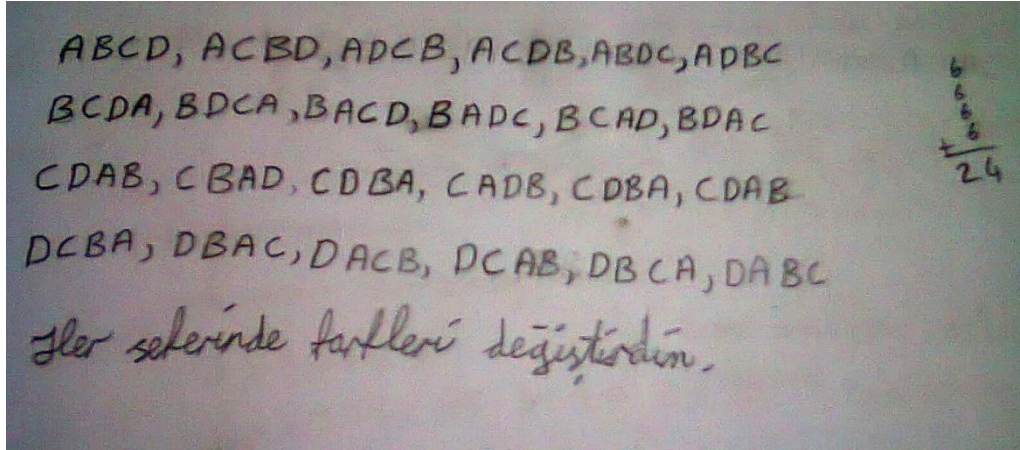 ABCD, ACBD, ADCB, ACDB, ABDC, ADBC
BCDA, BDCA, BACD, BADC, BCAD, BDAC
CDAB, CBAD, CDBA, CADB, CDBA, CDAB
DCBA, DBAC, DACB, DCAB, DBCA, DABC
Her seferinde değiştirdin.
6
6
6
6
+
24